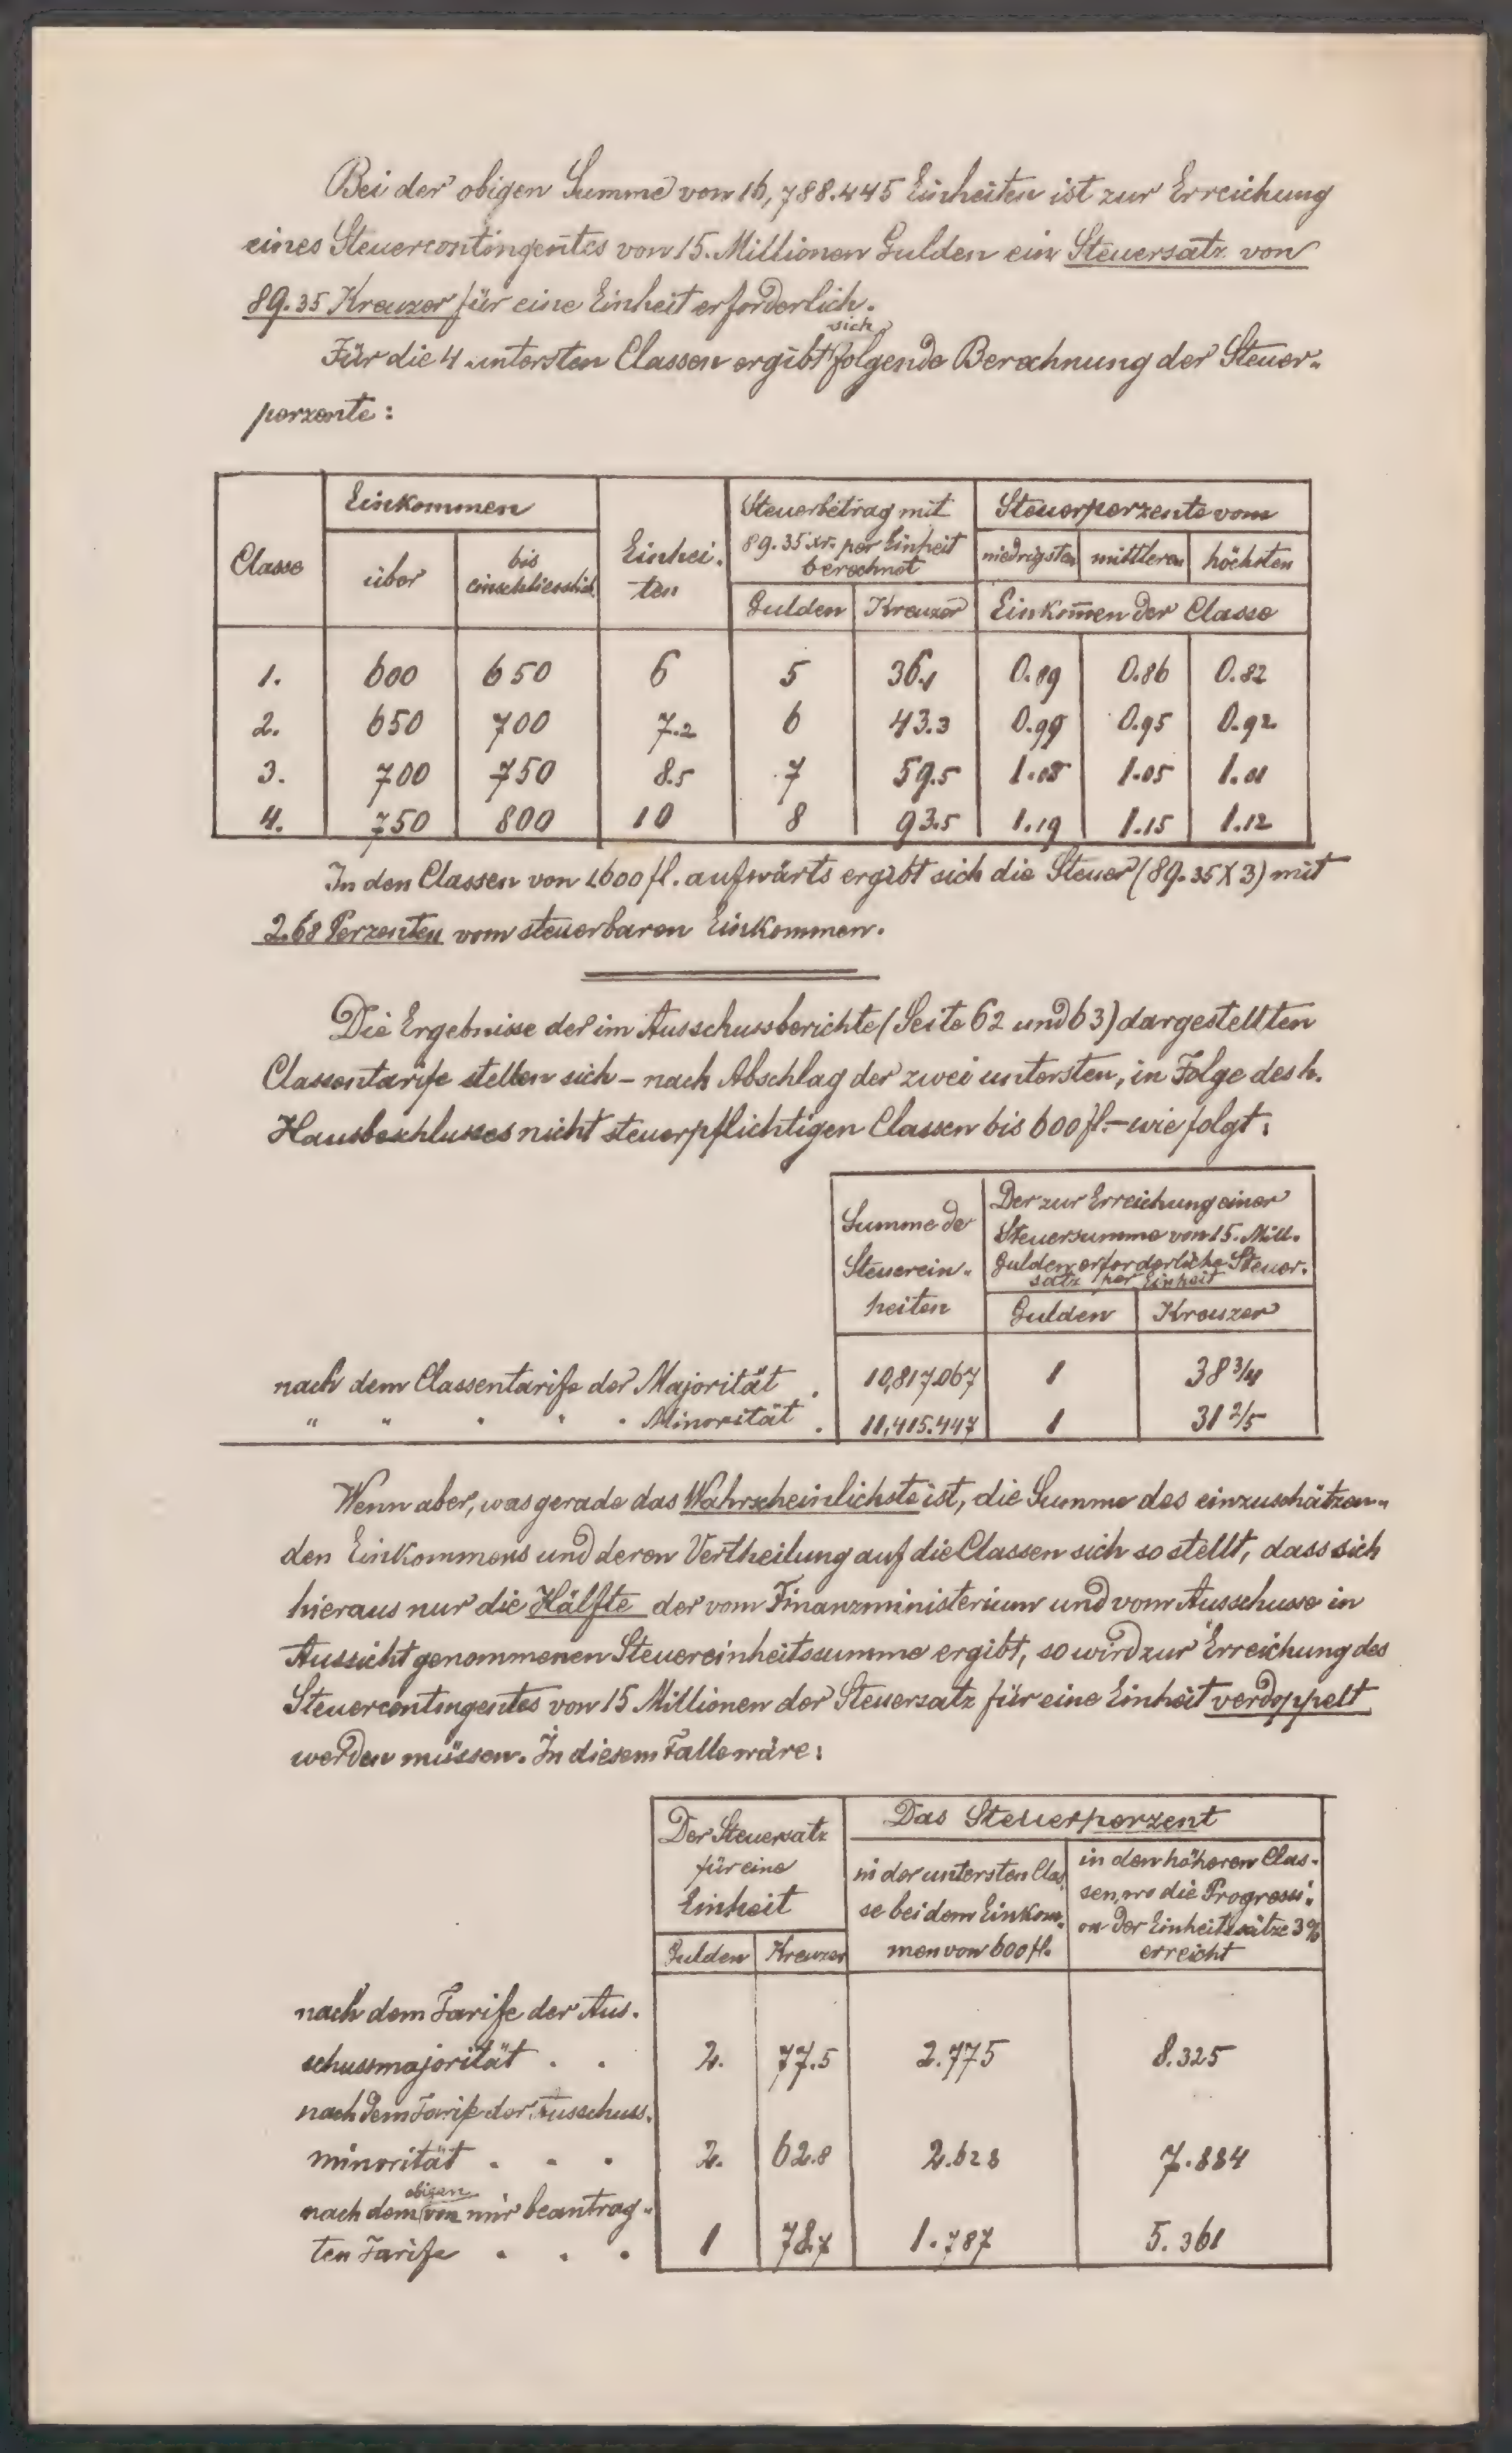 Bei der obigen Summe von 16,788.445 Einheiten ist zur Erreichung
eines Steuercontingentes von 15. Millionen Gulden ein Steuersatz von
89.35 Kreuzer für eine Einheit erforderlich.
sich
Für die 4 untersten Classen ergibt folgende Berechnung der Steuer-
perzente:
Classe | Einkommen | Einhei- | Steuerbetrag mit | Steuerperzente vom
über | bis einschliesslich | ten | 89.35 xr. per Einheit berechnet | niedrigsten | mittleren | höchsten
Gulden | Kreuzer | Einkom̄en der Classe
1. | 600 | 650 | 6 | 5 | 36.1 | 0.89 | 0.86 | 0.82
2. | 650 | 700 | 7.2 | 6 | 43.3 | 0.99 | 0.95 | 0.92
3. | 700 | 750 | 8.5 | 7 | 59.5 | 1.08 | 1.05 | 1.01
4. | 750 | 800 | 10 | 8 | 93.5 | 1.19 | 1.15 | 1.12
In den Classen von 1600 fl. aufwärts ergibt sich die Steuer (89.35 X 3) mit
2.68 Perzenten vom steuerbaren Einkommen.
Die Ergebnisse der im Ausschussberichte (Seite 62 und 63) dargestellten
Classentarife stellen sich – nach Abschlag der zwei untersten, in Folge des h.
Hausbeschlusses nicht steuerpflichtigen Classen bis 600 fl. – wie folgt:
Summe der
Steuerein-
heiten
Der zur Erreichung einer
Steuersumme von 15. Mill.
Gulden erforderliche Steuer-
satz per Einheit
Gulden | Kreuzer
nach dem Classentarife der Majorität . | 10,817.067 | 1 | 38 3/4
" " " " " Minorität . | 11,415.447 | 1 | 31 2/5
Wenn aber, was gerade das Wahrscheinlichste ist, die Summe des einzuschätzen-
den Einkommens und deren Vertheilung auf die Classen sich so stellt, dass sich
hieraus nur die Hälfte der vom Finanzministerium und vom Ausschusse in
Aussicht genommenen Steuereinheitssumme ergibt, so wird zur Erreichung des
Steuercontingentes von 15 Millionen der Steuersatz für eine Einheit verdoppelt
werden müssen. In diesem Falle wäre:
Der Steuersatz
für eine
Einheit
Gulden | Kreuzer
Das Steuerperzent
in der untersten Clas-
se bei dem Einkom-
men von 600 fl.
in den höheren Clas-
sen, wo die Progressi-
on der Einheitssätze 3%
erreicht
nach dem Tarife der Aus-
schussmajorität . . | 2. | 77.5 | 2.775 | 8.325
nach dem Tarife der Ausschuss-
minorität . . . | 2. | 62.8 | 2.628 | 7.884
obigen
nach dem von mir beantrag-
ten Tarife . . . | 1 | 78.7 | 1.787 | 5.361